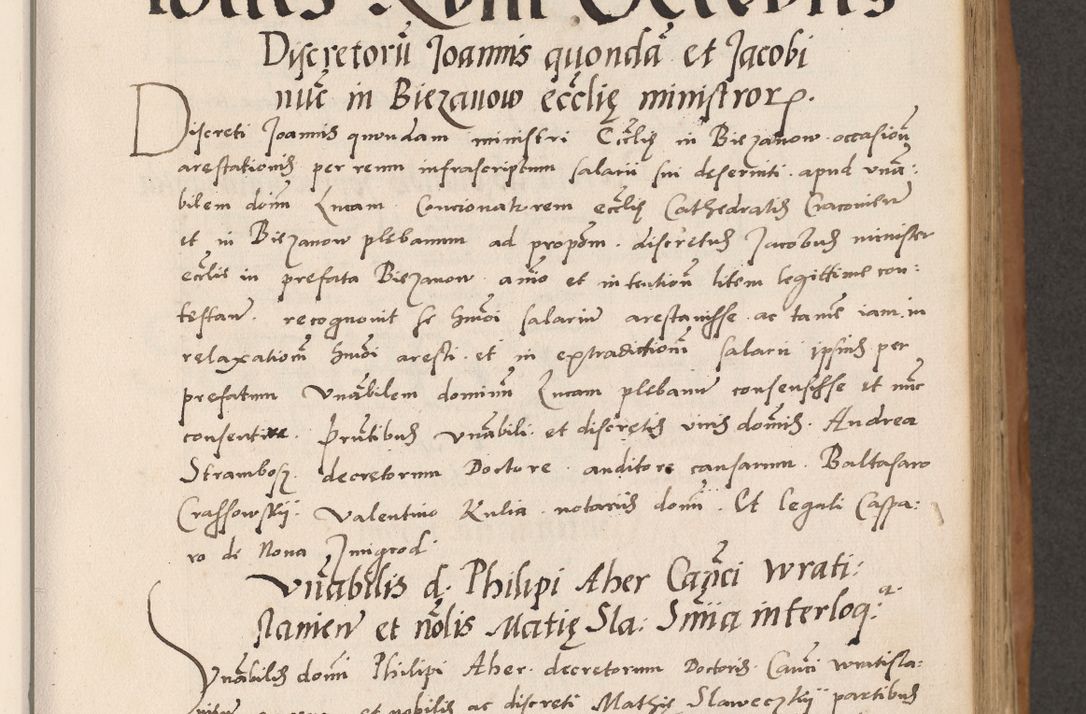 Discretorū Joannis quondā et Jacobi
nūc in Biezanow eccl̄ię ministrorꝝ.
Discreti Joannis quondam ministri Eccl̄ię in Biezanow occasioñ
arestationis per rerum infrascriptum salarii sui deserviti apud vn̄a:
bilem dom̄ Lucam Concionatorem eccl̄ię Cathedralis Cracovien̄
et in Biezanow plebanum ad propōm. discretus Jacobus minister
eccl̄ię in prefata Biezanow animo et intentioñ litem legittime con:
testan̄. recognovit se hmōi salariū arestavisse ac tamē iam in
relaxationem hmōi aresti et in extraditionem salarii ipsius per
prefatum Vn̄abilem dominum Lucam plebanū consensisse et nūc
consentire. P̄ntibus vn̄abili et discretis viris dominis Andrea
Strambosz decretorum Doctore auditore causarum. Baltasaro
Crassowskij. Valentino Kulia notariis domi. Et legali Caspa:
ro de Nova Jmigrod
Vn̄abilis d. Philipi Aher Can̄ci Wrati:
slavien̄ et nōlis Matię Sla: Sn̄iia interloq:ᵃ
Vn̄abilis domi Philipi Aher decretorum Doctoris Can̄ci wratisla:
et nobilis ac discreti Mathię Slaweczkij partibus